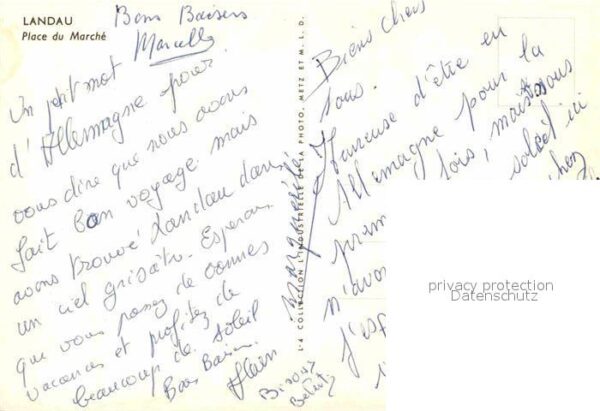 LANDAU
Place du Marché
Bons Baisers
Marcelle
Un petit mot
d'Allemagne pour
vous dire que nous avons
fait bon voyage mais
avons trouvé Landau dans
un ciel grisâtre. Espérons
que vous passez de bonnes
vacances et profitez de
beaucoup de soleil
Bons Baisers.
Alain
Marguerite
L-A COLLECTION L'INDUSTRIELLE DE LA PHOTO, METZ ET M. L. D.
Biens chers
tous.
Heureuse d'être en
Allemagne pour la
fois, mais nous
n'avo
soleil ici
chez
J'esp
privacy protection
Datenschutz